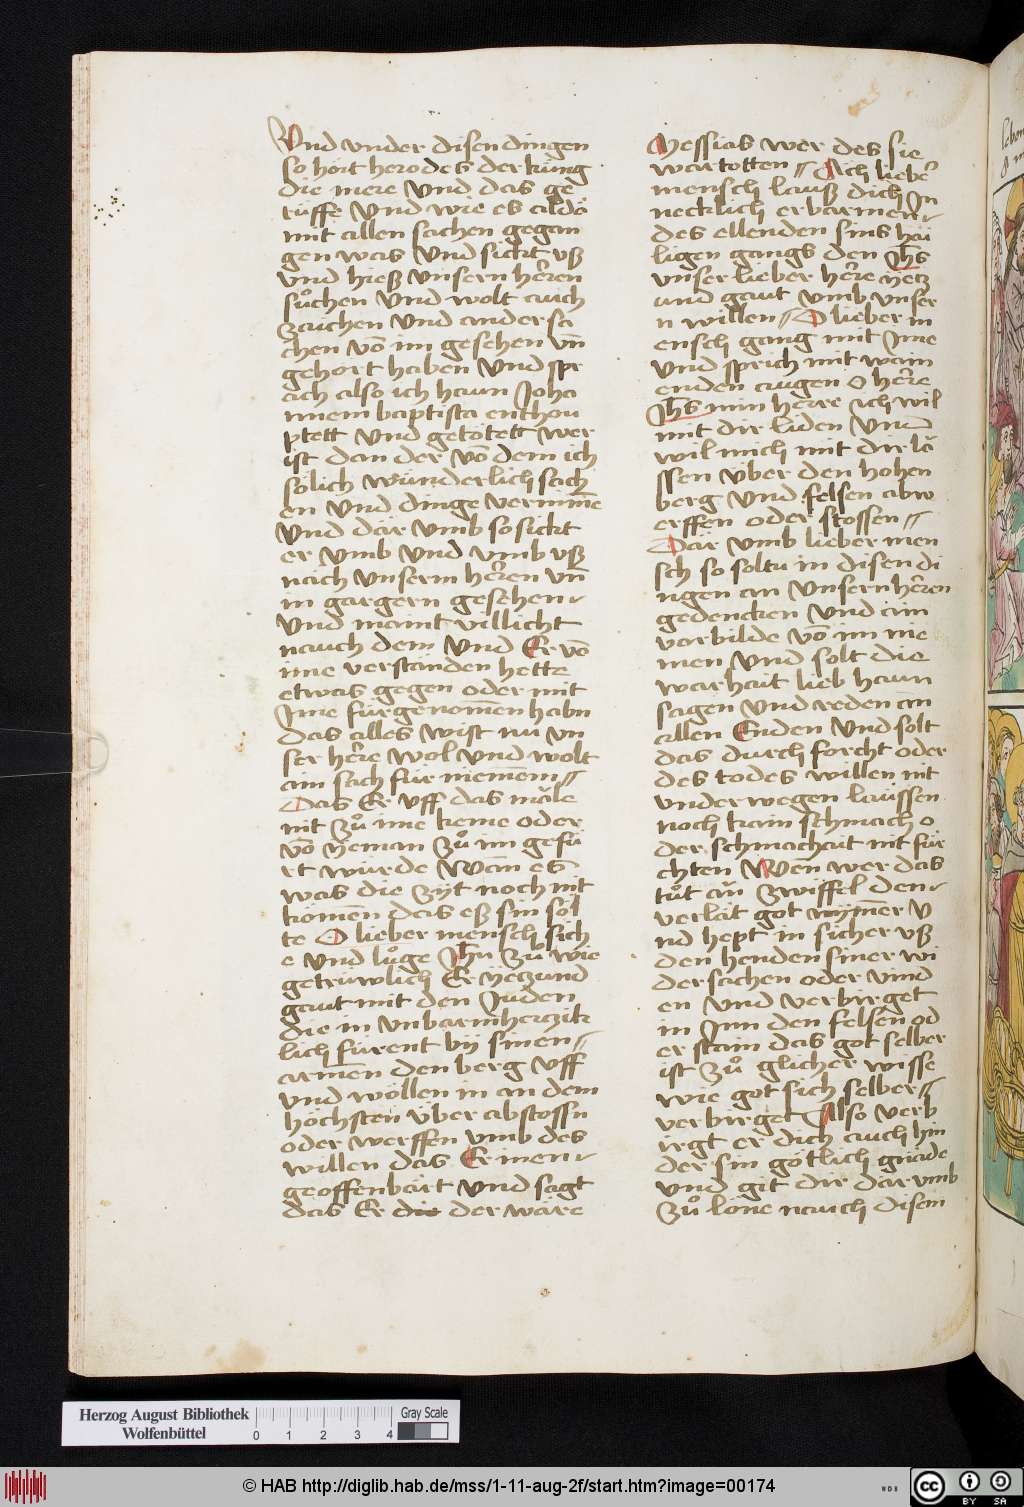 Und under disen dingen
so hört herodes der küng
die mere Und das ge
rüffe Und wie es aldo
mit allen sachen gegan
gen was Und sickt uß
Und hieß Unsern herren
suͦchen Und wolt auch
zaichen Und ander sa
chen vō im gesehen vn̄
gehort haben Und spr
ach also ich haun Joha
nnem baptista enthou
ptett Und getötett wer
ist dan der vō dem ich
sölich wunderlich sach
en Und dinge vernimē
Und dar umb so sickt
er Umb Und Umb uß
nach Unserm herren vn̄
in gargern gesehen
Und maint villicht
nauch dem Und Er vō
ime verstanden hette
etwas gegen oder mit
Jme fürgenomen habn
das alles wist nu un
ser herre wol Und wolt
ain sach für niemem //
Das Er uff das mäle
nit zuͦ ime keme oder
vō yeman zuͦ im gefü
rt würde Wan es
was die zyt noch nit
komen das eß sin söl
te O lieber mensch sich
e Und luͦge Jhm̄ zuͦ wie
getrüwlich Er yetzund
gaut mit den Juden
die in Unbarmhertzik
lich fürent by sinen //
armen den berg uff
und wöllen in an dem
höchsten über abstossn
oder werffen umb des
willen das Er inen
geoffenbärt Und sagt
das Er der wäre
Messias wer des sie
wartotten // Ach lieber
mensch lauß dich In
necklich erbarmen
des ellenden sins häi
ligen gangs den Jhs
unser lieber herre yetz
und gaut umb unser
n willen // O lieber m
ensch gang mit Jme
Und sprich mit wain
enden augen o herre
Jhs min herre ich wil
mit dir liden Und
wil mich mit dir lä
ssen über den hohen
berg Und felsen abw
erffen oder stossen //
Dar umb lieber men
sch so soltu in disen di
ngen an Unsern herren
gedencken Und ain
vorbilde vō im nie
men Und solt die
warhait lieb haun
sagen Und reden an
allen Enden Und solt
das durch forcht oder
des todes willen nit
under wegen laussen
noch kain schmach o
der schmachait nit für
chten Wen wer das
tuͦt an zwiffel den
verlät got nymer U
nd hept in sicher uß
den henden siner wi
dersachen oder vind
en Und verbirget
in Jnn den felsen od
er stain das got selber
ist zuͦ glicher wisse
wie got sich selber //
verbirget Also verb
irgt er dich auch hin
der sin götlich gnade
Und git dir dar umb
zuͦ lone nauch disem
Herzog August Bibliothek
Wolfenbüttel
0 1 2 3 4
Gray Scale
© HAB http://diglib.hab.de/mss/1-11-aug-2f/start.htm?image=00174
WDB
cc BY SA